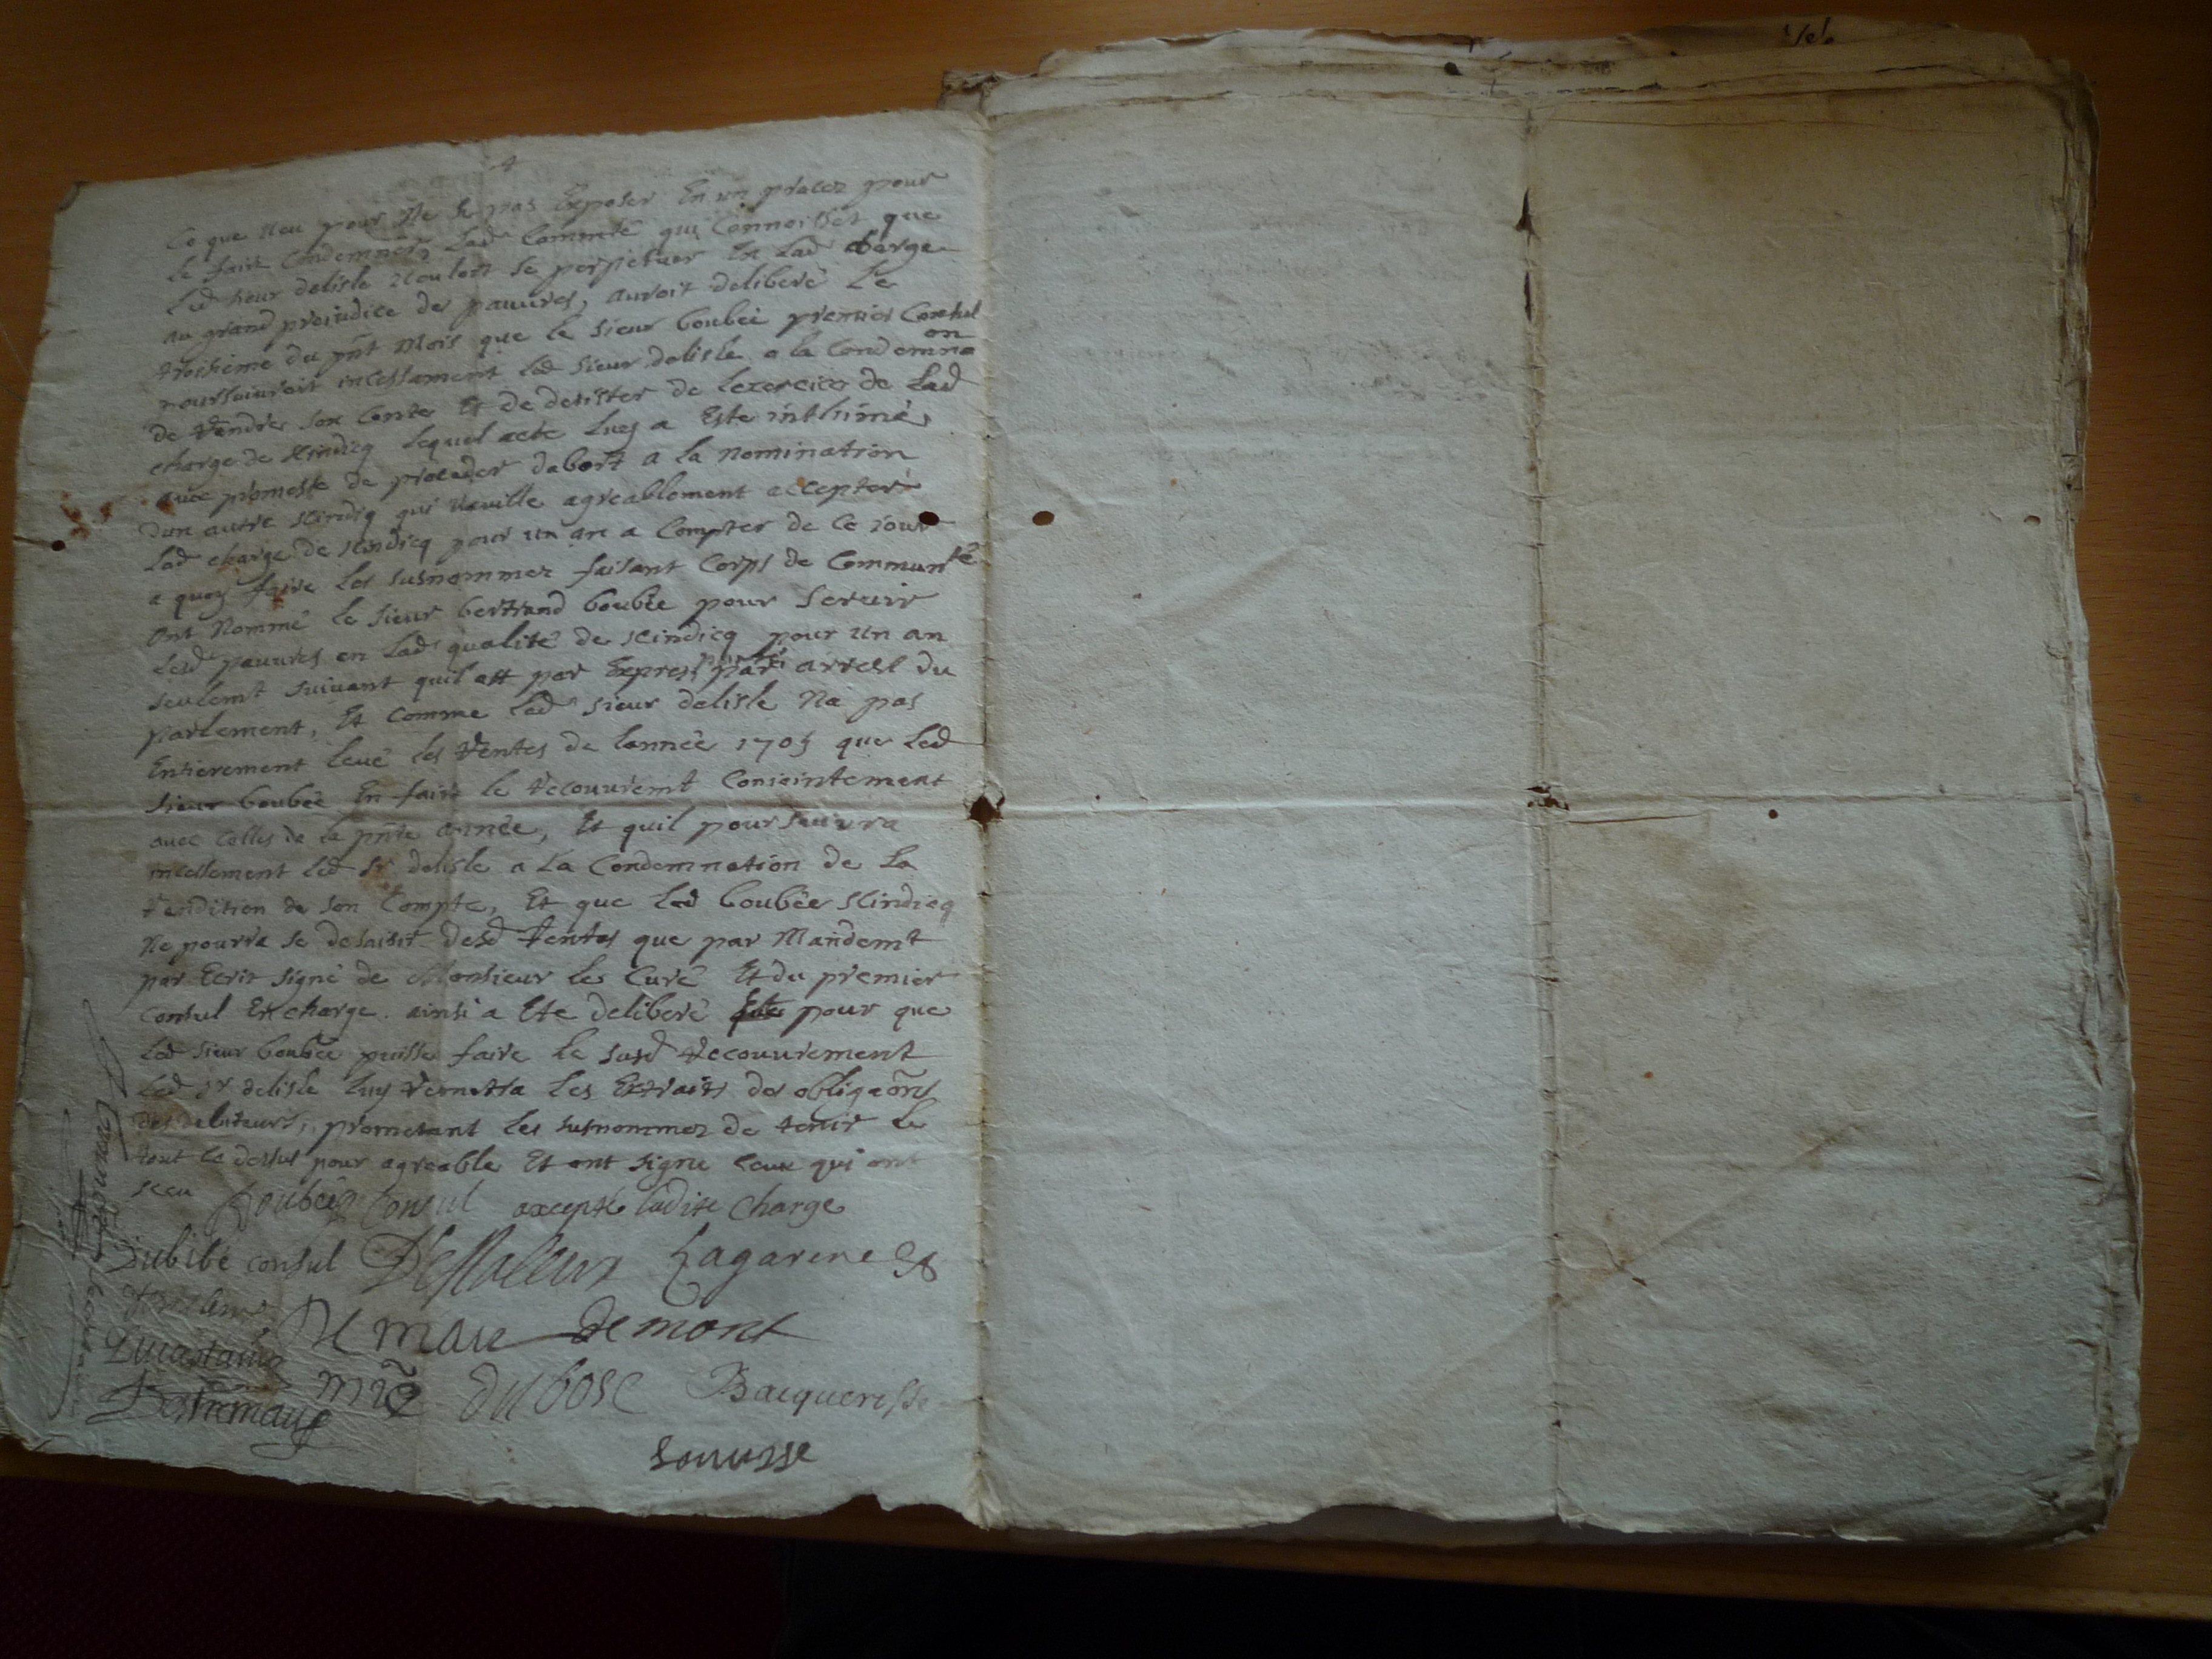 Ce que veu pour ne se pas Exposer En un procez pour
Le faire Condemner, Lad Commté qui Connoissoit que
Led sieur delisle vouloit se perpetuer En Lad charge
au grand preiudice des pauures, auroit deliberé Le
troisieme du pñt Mois que le sieur boubée premier Consul
poursuiuroit incessament led sieur delisle a la Condemna
on
de Rendre son Conte Et de desister de Lexercice de Lad
charge de scindicq Lequel acte Luy a Esté inthimé,
auec promesse de proceder dabort a la nomination
dun autre scindiq qui Veuille agreablement accepter
Lad charge de scindicq pour un an a Compter de Ce iour
a quoy faire Les susnommez faisant Corps de Communté
ont Nommé le sieur bertrand boubée pour Seruir
Lesd pauures en Lad qualité de scindicq pour un an
seulemt suiuant quil est par Expres par arrest du
parlement, Et Comme Led sieur delisle Na pas
Entierement Leué les Rentes de Lannée 1705 que Led
sieur boubée En faira le Recouuremt Coniointement
auec Celles de la pñte année, Et quil poursuiura
incessement Led sr delisle a La Condemnation de La
Rendition de son Compte, Et que Led boubée scindicq
Ne pourra se desaisir desd Rentes que par Mandemt
par Ecrit signé de Monsieur le Curé Et du premier
Consul En charge. ainsi a Ete deliberé pour que
Led sieur boubée puisse faire le susd Recouurement
Led sr delisle Luy Remetra Les Extraits des obligaôns
des debiteurs, prometant les susnommez de tenir Le
tout Ce dessus pour agreable Et ont signé Ceux qui ont
sceu
Boubée Consul accepté ladite Charge
Dubibé consul Lagarene
De mau demont
dubosc Bacquerisse
Destremau